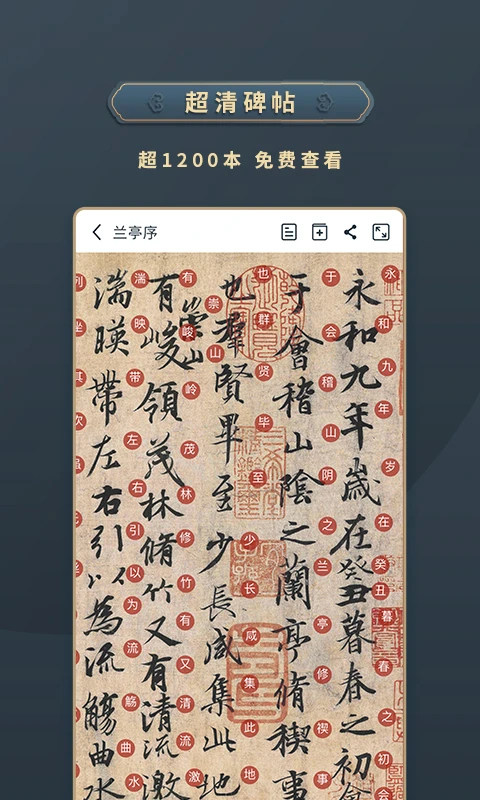 超清碑帖
超1200本 免费查看
兰亭序
永和九年歲在癸丑暮春之初會
永和九年岁在癸丑暮春之初会
于會稽山陰之蘭亭脩稧事
于会稽山阴之兰亭修禊事
也羣賢畢至少長咸集此地
也群贤毕至少长咸集此地
有崇山峻領茂林脩竹又有清流激
有崇山峻岭茂林修竹有又清流激
湍暎帶左右引以為流觴曲水
湍映带左右引以为流觞曲水
列坐其次